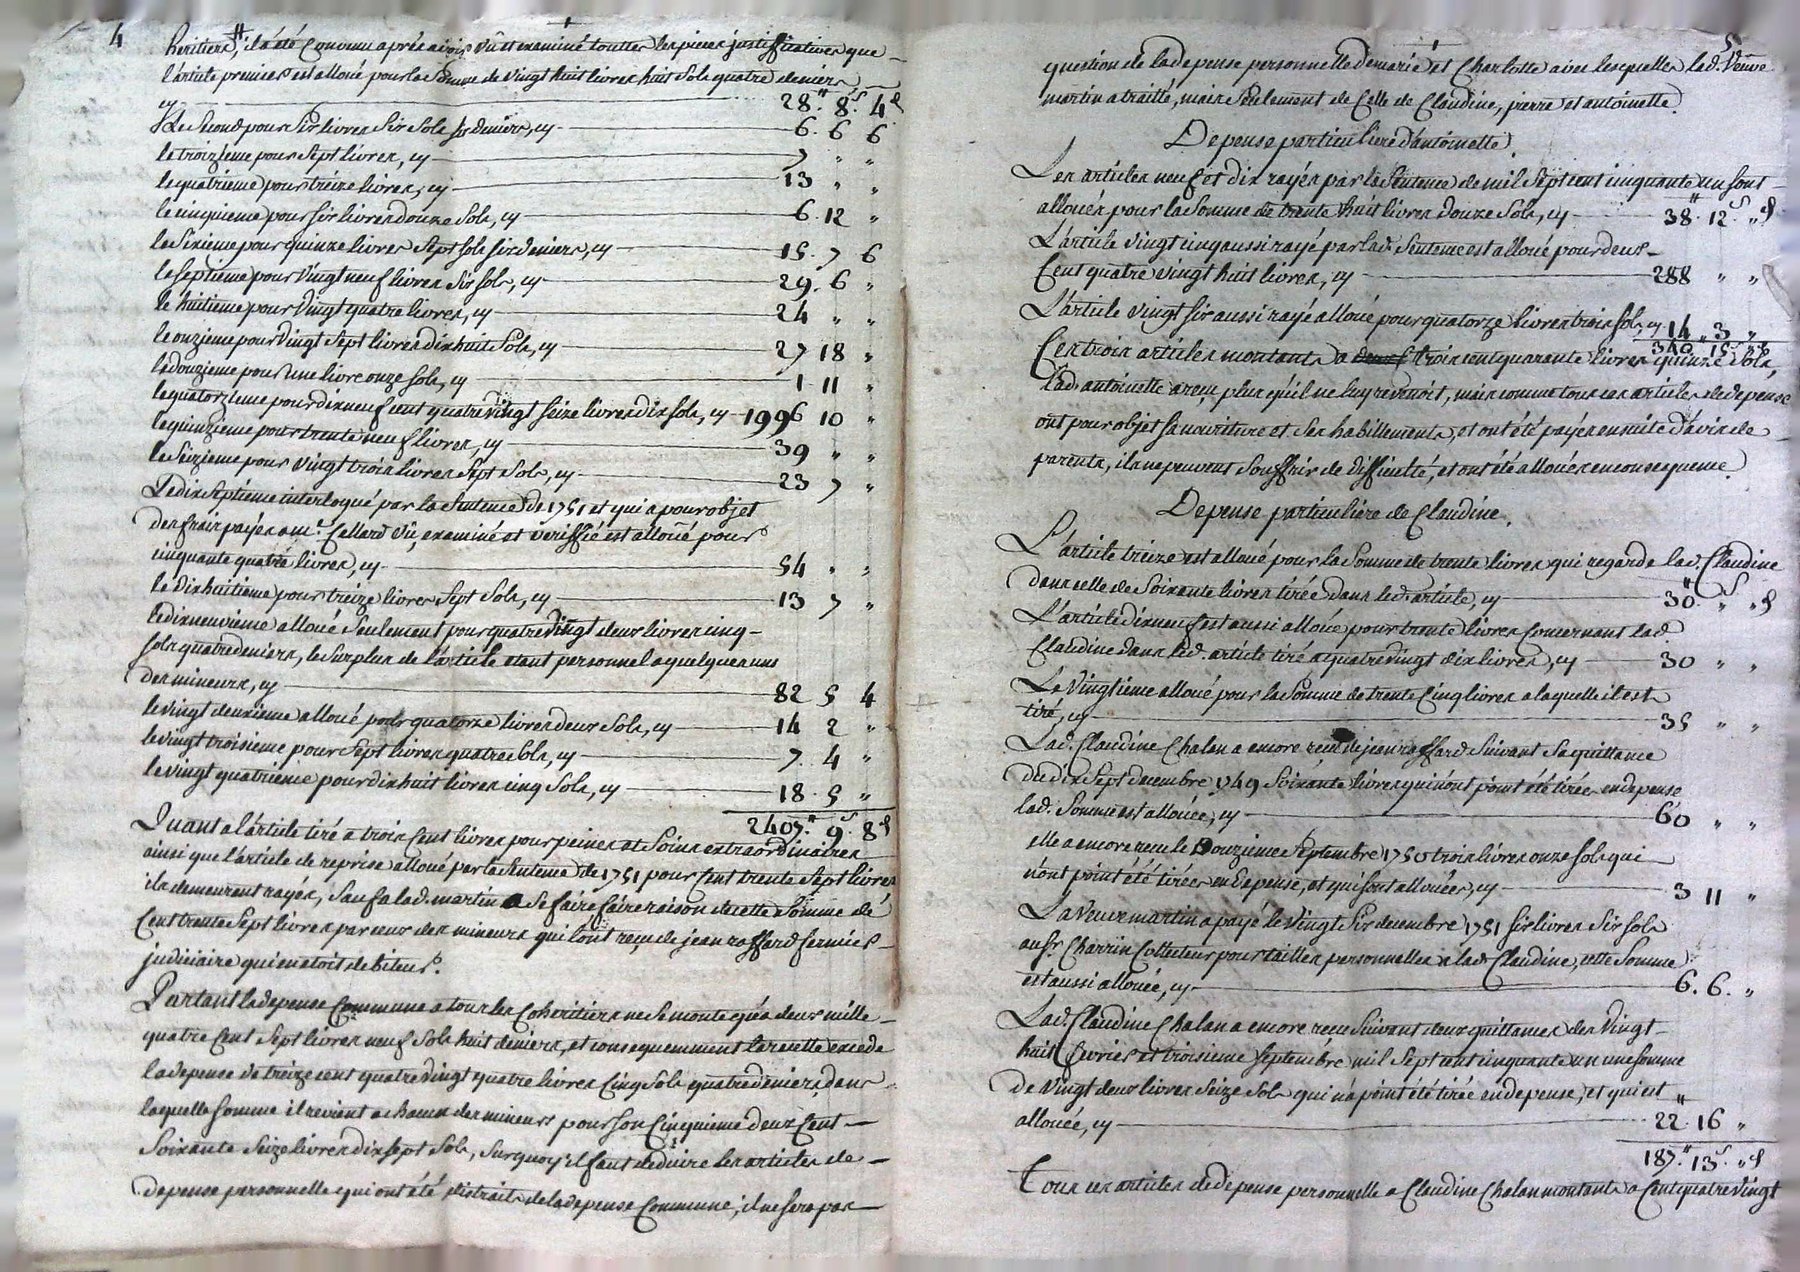 4
heritiers, il a été Convenu après avoir vû et examiné touttes les pieces justifficatives que
l'article premier est alloué pour la somme de vingt huit livres huit sols quatre deniers,
cy 28.# 8.s 4.d
Le second pour six livres six sols six deniers, cy 6. 6 6
le troizieme pour sept livres, cy 7 " "
le quatrieme pour treize livres, cy 13 " "
le cinquieme pour six livres douze sols, cy 6. 12 "
le sixieme pour quinze livres sept sols six deniers, cy 15. 7 6
le septieme pour vingt neuf livres six sols, cy 29. 6 "
le huitieme pour vingt quatre livres, cy 24 " "
le onzieme pour vingt sept livres dix huit sols, cy 27 18 "
le douzieme pour une livre onze sols, cy 1 11 "
le quatorzieme pour dix neuf cent quatre vingt seize livres dix sols, cy 1996 10 "
le quinzieme pour trente neuf livres, cy 39 " "
le seizieme pour vingt trois livres sept sols, cy 23 7 "
Le dix septieme interloqué par la sentence de 1751 et qui a pour objet
des frais payés a me. Cellard vû, examiné et veriffié est alloué pour
cinquante quatre livres, cy 54 " "
le dix huitieme pour treize livres sept sols, cy 13 7 "
le dix neuvieme alloué seulement pour quatre vingt deux livres cinq
sols quatre deniers, le surplus de l'article etant personnel a quelques uns
des mineurs, cy 82 5 4
le vingt deuxieme alloué pour quatorze livres deux sols, cy 14 2 "
le vingt troisieme pour sept livres quatre sols, cy 7. 4 "
le vingt quatrieme pour dix huit livres cinq sols, cy 18. 5 "
2407.# 9.s 8.d
Quant a l'article tiré a trois cent livres pour peines et soins extraordinaires
ainsi que l'article de reprise alloué par la sentence de 1751 pour cent trente sept livres
ils demeurent rayés, sauf a lad. martin a se faire faire raison de cette somme de
Cent trente sept livres par ceux des mineurs qui l'ont reçu de jean raffard fermier
judiciaire qui en etoit debiteur.
Partant la depense Commune a tous les Coheritiers ne se monte qu'a deux mille
quatre cent sept livres neuf sols huit deniers, et consequemment la recette excede
la depense de treize cent quatre vingt quatre livres cinq sols quatre deniers, dans
laquelle somme il revient a chacun des mineurs pour son Cinquieme deux Cent
soixante seize livres dix sept sols, surquoy il faut deduire les articles de
depense personnelle qui ont été distraits de la depense Commune; il ne sera pas
5
question de la depense personnelle de marie et Charlotte avec lesquelles lad. Veuve
martin a traitté, mais seulement de Celle de Claudine, pierre et antoinette.
Depense particuliere d'antoinette.
Les articles neuf et dix rayés par la sentence de mil sept cent cinquante un sont
alloués pour la somme de trente huit livres douze sols, cy 38.# 12.s "d
L'article vingt cinq aussi rayé par lad. sentence est alloué pour deux
Cent quatre vingt huit livres, cy 288 " "
L'article vingt six aussi rayé alloué pour quatorze livres trois sols, cy 14 " 3 "
340 15s "d
Ces trois articles montants a trois cent quarante livres quinze sols,
lad. antoinette a reçu plus qu'il ne luy revenoit, mais comme tous ces articles de depense
ont pour objet sa nourriture et ses habillements, et ont été payés ensuite d'avis de
parents, ils ne peuvent souffrir de difficulté, et ont été alloués en consequence.
Depense particuliere de Claudine.
L'article treize est alloué pour la somme de trente livres qui regarde lad. Claudine
dans celle de soixante livres tirée dans led. article, cy 30.# "s "d
L'article dix neuf est aussi alloué pour trente livres Concernant lad.
Claudine dans led. article tiré a quatre vingt dix livres, cy 30 " "
Le vingtieme alloué pour la somme de trente Cinq livres a laquelle il est
tiré, cy 35 " "
Lad. Claudine Chalan a encore reçu de jean raffard suivant sa quittance
du dix sept decembre 1749 soixante livres qui n'ont point été tirées en depense
lad. somme est allouée, cy 60 " "
elle a encore reçu le douzieme septembre 1750 trois livres onze sols qui
n'ont point été tirées en depense, et qui sont allouées, cy 3 11 "
La Veuve martin a payé le vingt six decembre 1751 six livres six sols
au sr. Charrin Collecteur pour tailles personnelles a lad. Claudine, cette somme
est aussi allouée, cy 6. 6. "
Lad. Claudine Chalan a encore reçu suivant deux quittances des vingt
huit fevrier et troisieme septembre mil sept cent cinquante un une somme
de vingt deux livres seize sols qui n'a point été tirée en depense, et qui est
allouée, cy 22.# 16 "
187.# 13.s "d
Tous ces articles de depense personnelle a Claudine Chalan montants a Cent quatre vingt